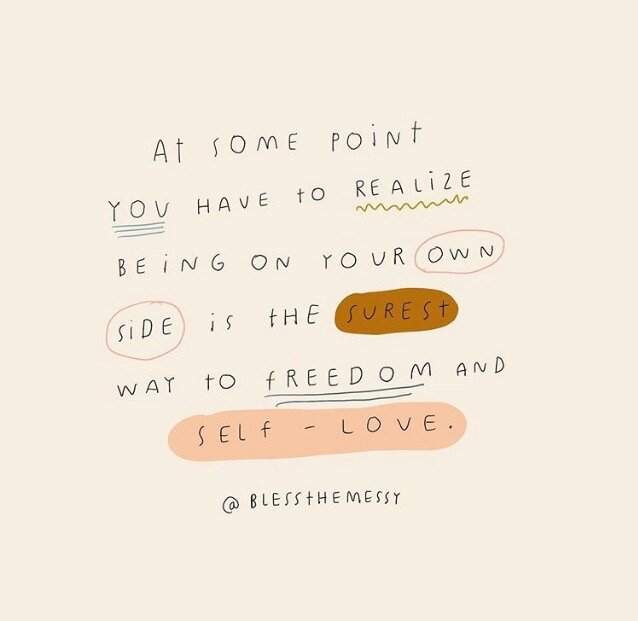 At SOME POINt
YOU HAVE tO REALIZE
BEING ON YOUR OWN
SIDE is tHE SUREST
WAY tO fREEDOM AND
SELf - LOVE.
@BLESSTHEMESSY